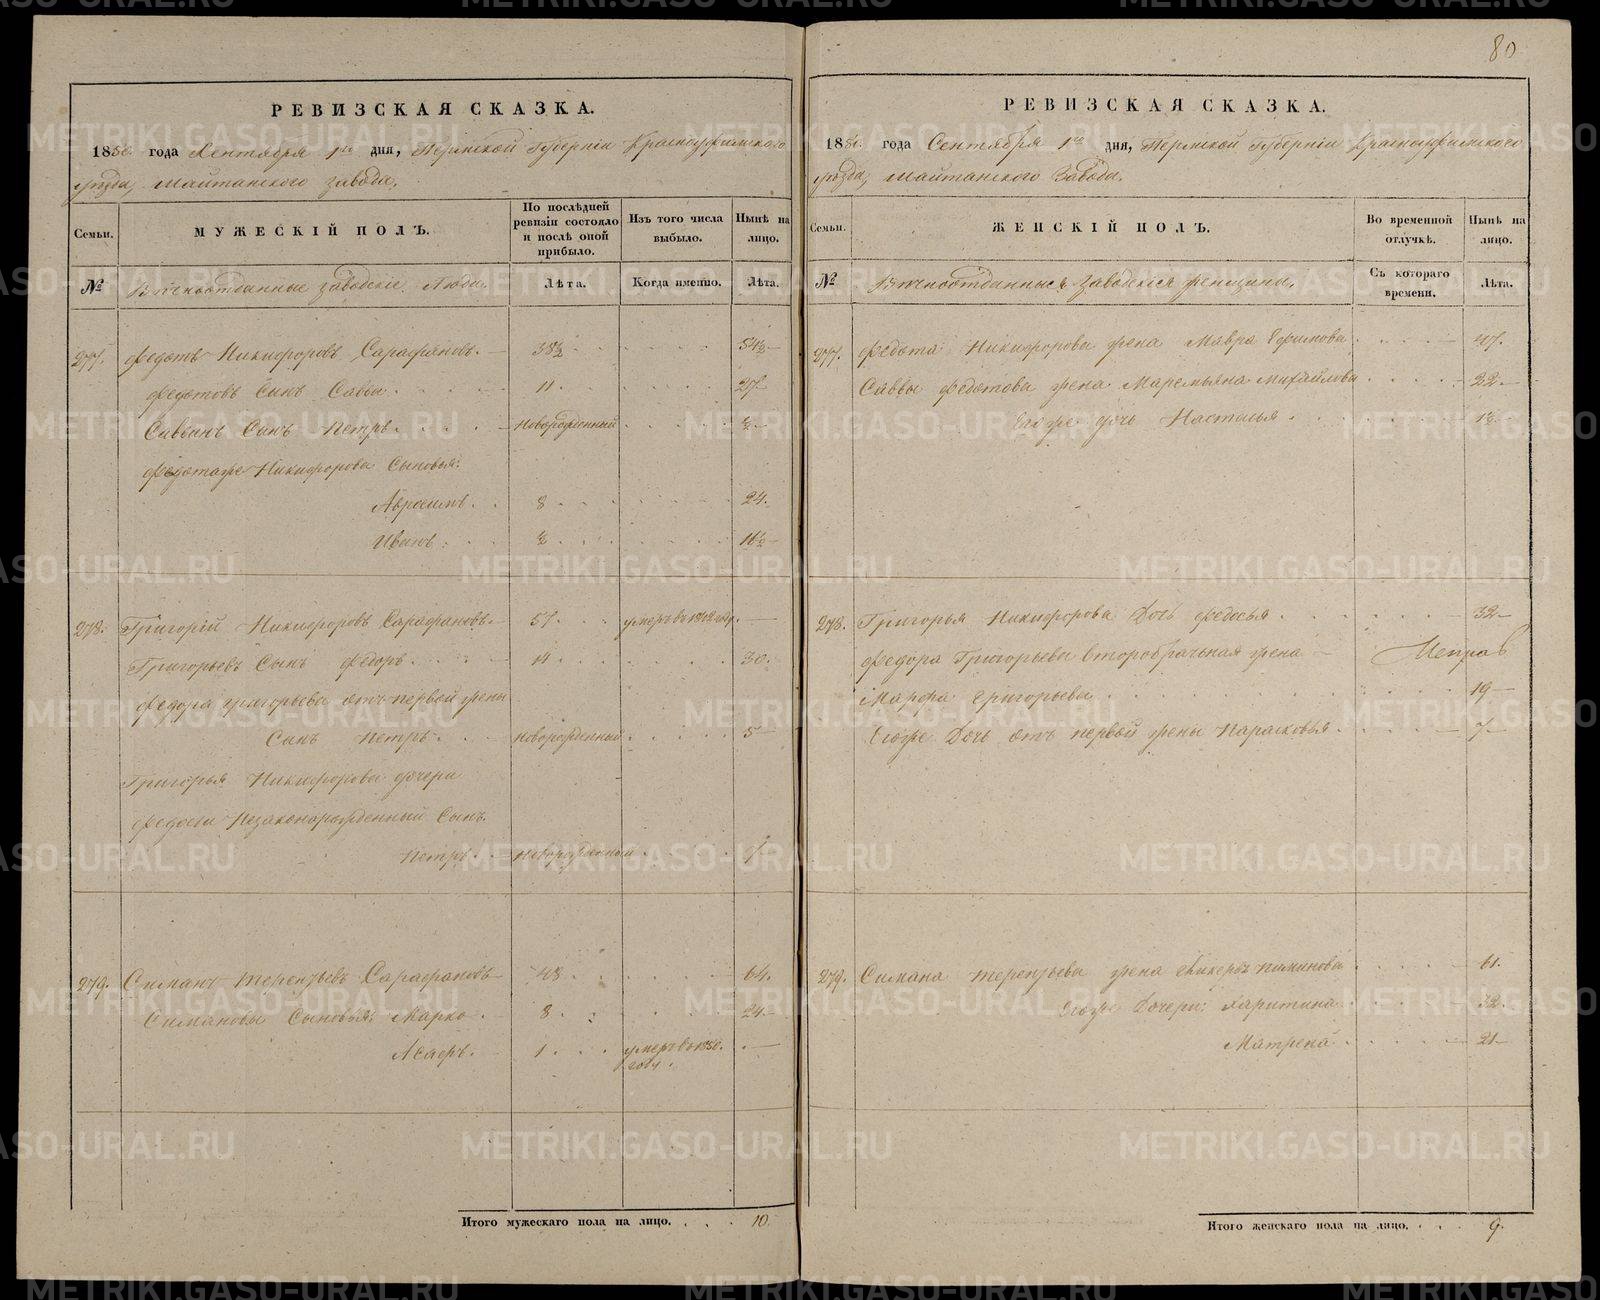 80
РЕВИЗСКАЯ СКАЗКА.
1850 года Сентября 1го дня, Пермской Губерніи Красноуфимскаго
уѣзда, Шайтанского завода.
Семьи.
МУЖЕСКІЙ ПОЛЪ.
По послѣдней ревизіи состояло и послѣ оной прибыло.
Изъ того числа выбыло.
Нынѣ на лицо.
№
Вѣчноотданные заводскіе Люди.
Лѣта.
Когда именно.
Лѣта.
277. Федотъ Никифоровъ Сарафановъ. 38½ 54½
Федотовъ Сынъ Савва 11. 27
Саввинъ Сынъ Петръ. новорожденный ½
Федотаже Никифорова Сыновья:
Авраамъ. 8 24.
Иванъ. ½ 16½
278. Григорій Никифоровъ Сарафановъ. 57. умеръ въ 1842 году.
Григорьевъ Сынъ Федоръ. 14. 30.
Федора Григорьева отъ первой жены
Сынъ Петръ. новорожденный 5
Григорья Никифорова дочери
Федосьи Незаконорожденный Сынъ
Петръ. новорожденный
279. Симанъ Терентьевъ Сарафановъ 48. 64.
Симановы Сыновья: Марко 8. 24.
1 умеръ въ 1850. году.
Итого мужескаго пола на лицо. 10.
РЕВИЗСКАЯ СКАЗКА.
1850. года Сентября 1го дня, Пермской Губерніи Красноуфимского
уѣзда, Шайтанского Завода.
Семьи.
ЖЕНСКІЙ ПОЛЪ.
Во временной отлучкѣ.
Нынѣ на лицо.
№
Вѣчноотданныя Заводскія женщины.
Съ котораго времени.
Лѣта.
277. Федота Никифорова жена Мавра Ефимова 47.
Саввы Федотова жена Маремьяна Михайлова 22.
Егоже дочь Настасья 1½
278. Григорья Никифорова Дочь Федосья 32
Федора Григорьева второбрачная жена
Марфа Григорьева 19
Егоже Дочь отъ первой жены Парасковья 7
279. Симана Терентьева жена Гликерья Пиминова 61.
Егоже Дочери: Харитина 32.
Матрена 21
Итого женскаго пола на лицо. 9.
METRIKI.GASO-URAL.RU